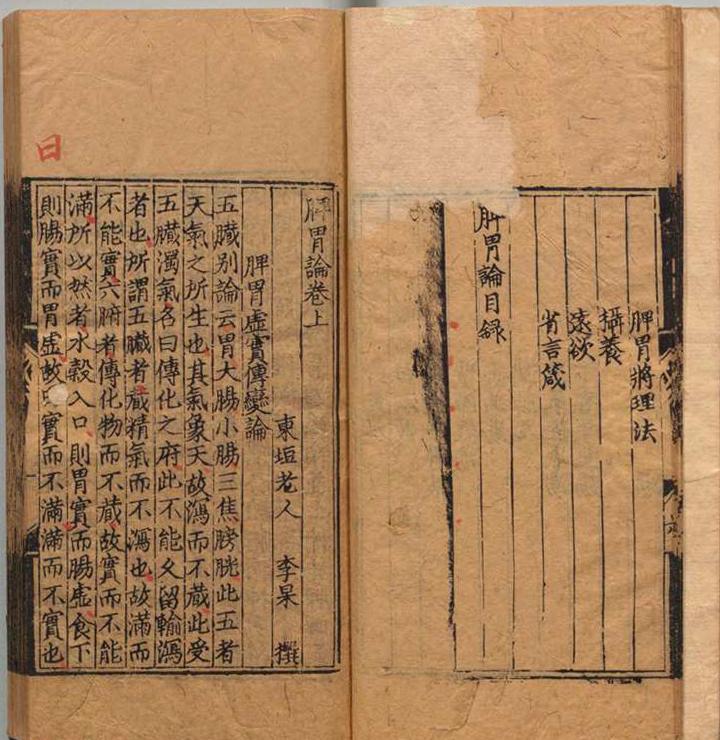 脾胃將理法
攝養
遠欲
省言箴
脾胃論目録
脾胃論卷上
東垣老人 李杲 撰
脾胃虛實傳變論
五臟别論云胃大腸小腸三焦膀胱此五者
天氣之所生也其氣象天故瀉而不藏此受
五臟濁氣名曰傳化之府此不能久留輸瀉
者也所謂五臟者藏精氣而不瀉也故滿而
不能實六腑者傳化物而不藏故實而不能
滿所以然者水穀入口則胃實而腸虛食下
則腸實而胃虛故 實而不滿滿而不實也
曰